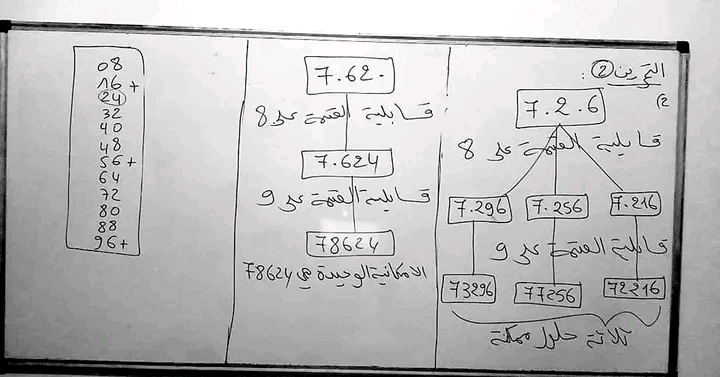 التمرين ② :
(2
7.2.6
قابلية القسمة على 8
7.296 7.256 7.216
قابلية القسمة على 9
73296 77256 72216
ثلاثة حلول ممكنة
7.62.
قابلية القسمة على 8
7.624
قابلية القسمة على 9
78624
الامكانية الوحيدة هي 78624
08
16 +
24
32
40
48
56 +
64
72
80
88
96 +